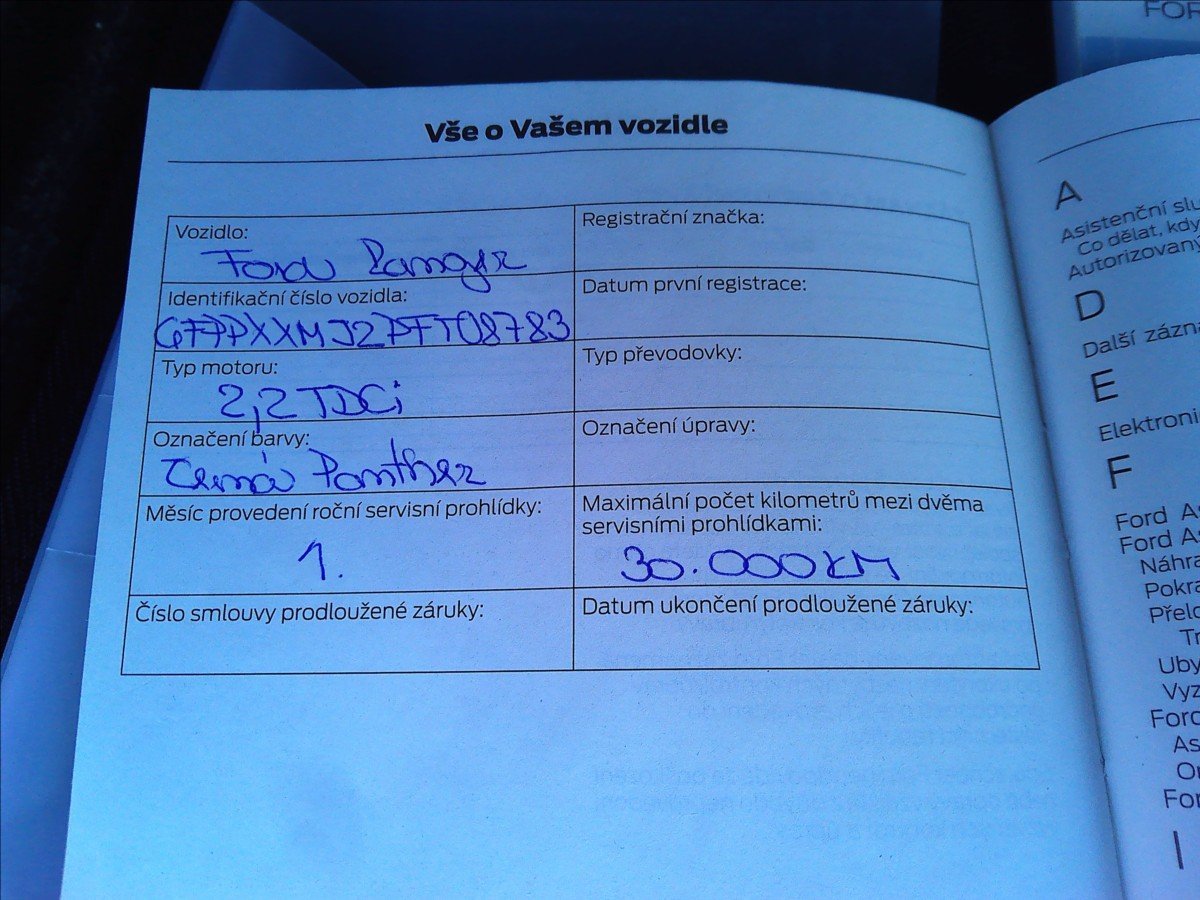 FOR
Vše o Vašem vozidle
Vozidlo:
Ford Ranger
Registrační značka:
Identifikační číslo vozidla:
6FPPXXMJ2PFT08783
Datum první registrace:
Typ motoru:
2,2 TDCi
Typ převodovky:
Označení barvy:
Černá Panther
Označení úpravy:
Měsíc provedení roční servisní prohlídky:
1.
Maximální počet kilometrů mezi dvěma
servisními prohlídkami:
30.000 KM
Číslo smlouvy prodloužené záruky:
Datum ukončení prodloužené záruky:
A
Asistenční slu
Co dělat, kdy
Autorizovaný
D
Další zázn
E
Elektroni
F
Ford As
Ford As
Náhra
Pokra
Přelo
Tr
Uby
Vyz
Ford
As
Or
For
I